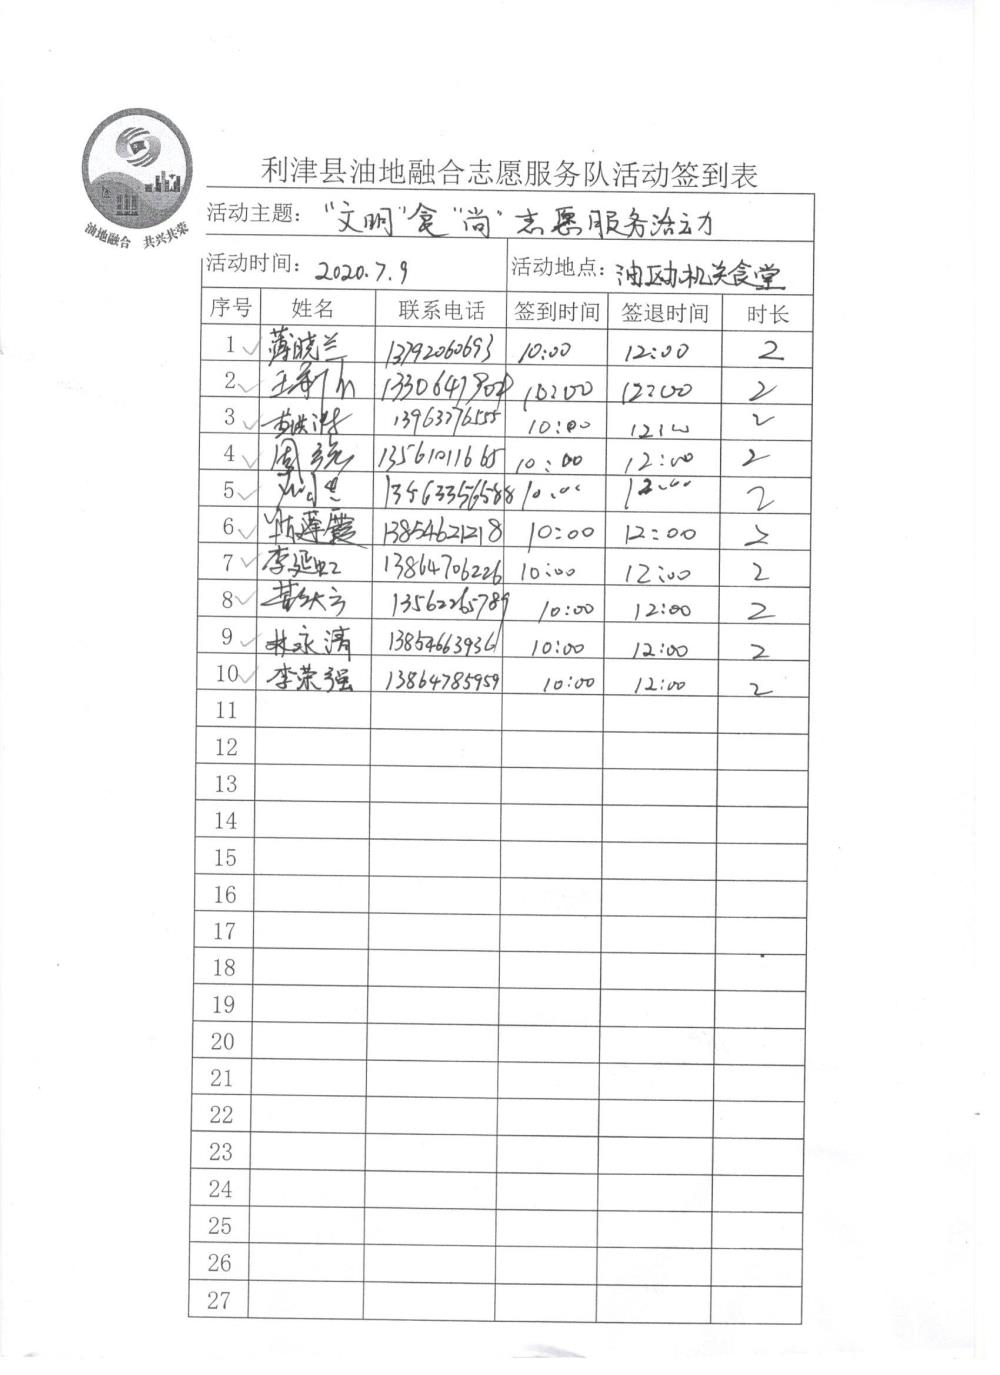 油地融合 共兴共荣
利津县油地融合志愿服务队活动签到表
活动主题："文明"食"尚"志愿服务活动
活动时间：2020.7.9 活动地点：油区办机关食堂
序号 姓名 联系电话 签到时间 签退时间 时长
1 薄晓兰 13792060693 10:00 12:00 2
2 王 10:00 12:00 2
3 13963776555 10:00 12:00 2
4 周 13561011665 10:00 12:00 2
5 13563356588 10:00 12:00 2
6 陈莲霞 13854621218 10:00 12:00 2
7 李延虹 13864706226 10:00 12:00 2
8 13562265789 10:00 12:00 2
9 林永清 13854663936 10:00 12:00 2
10 李荣强 13864785959 10:00 12:00 2
11
12
13
14
15
16
17
18
19
20
21
22
23
24
25
26
27